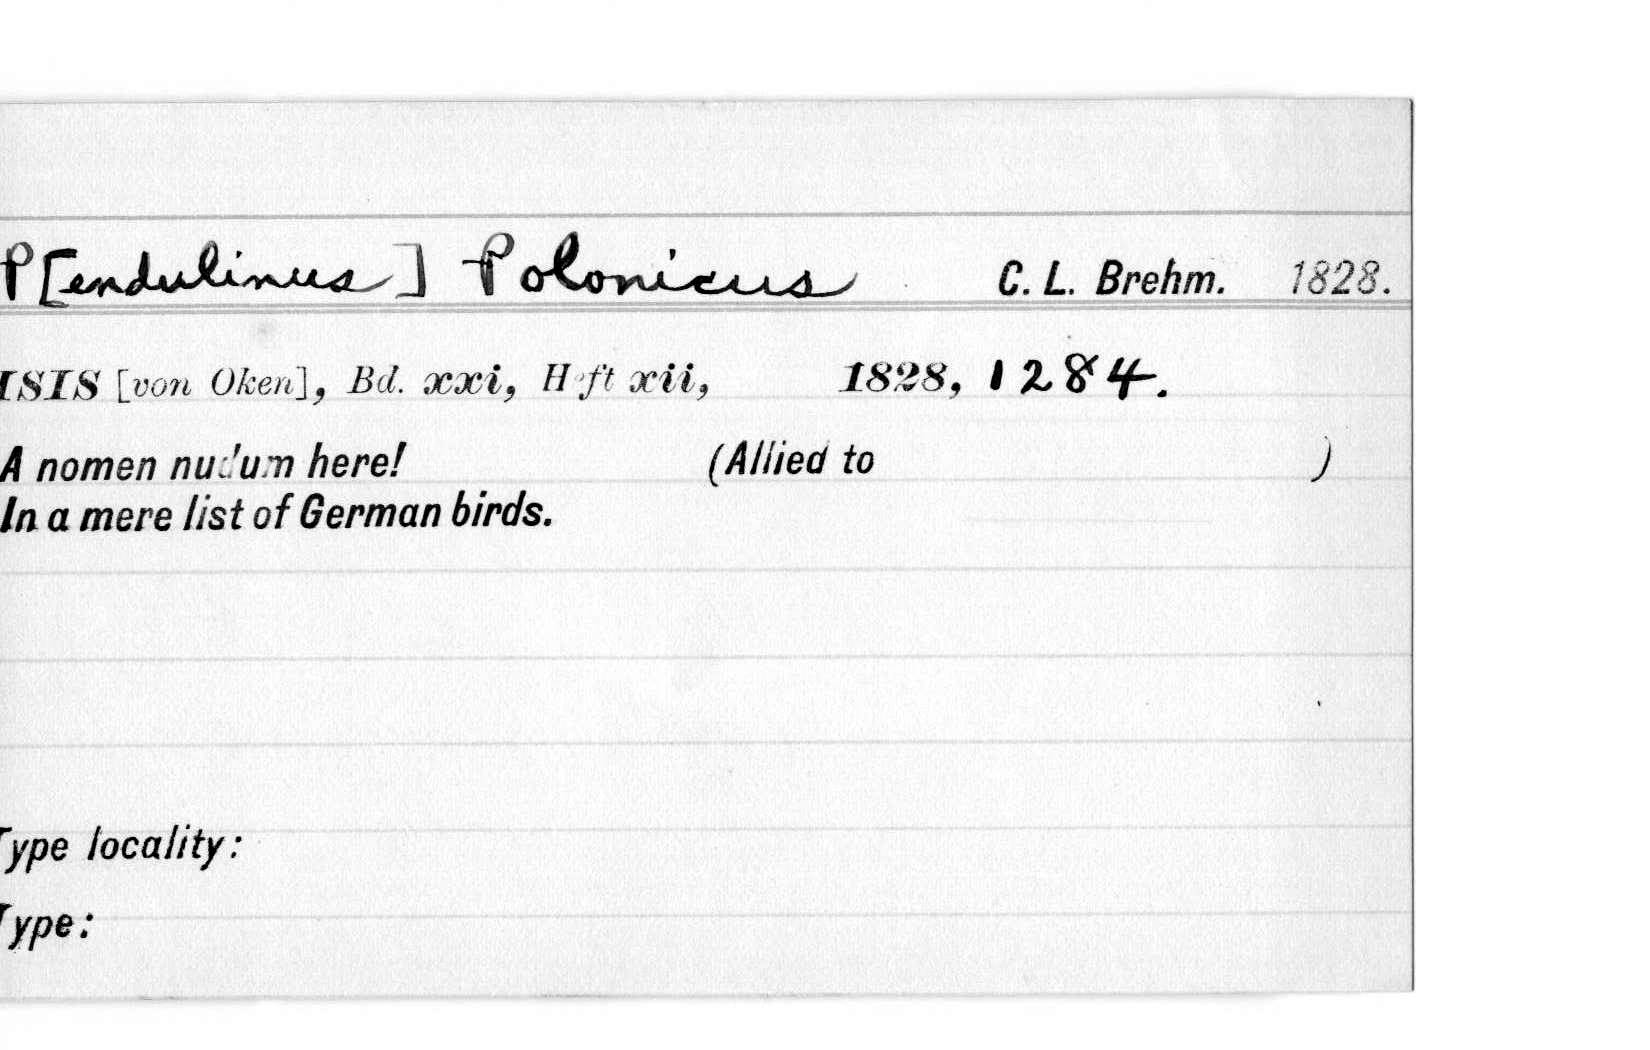 P[endulinus] Polonicus C. L. Brehm. 1828.
ISIS [von Oken], Bd. xxi, Heft xii, 1828, 1284.
A nomen nudum here! (Allied to )
In a mere list of German birds.
Type locality:
Type: